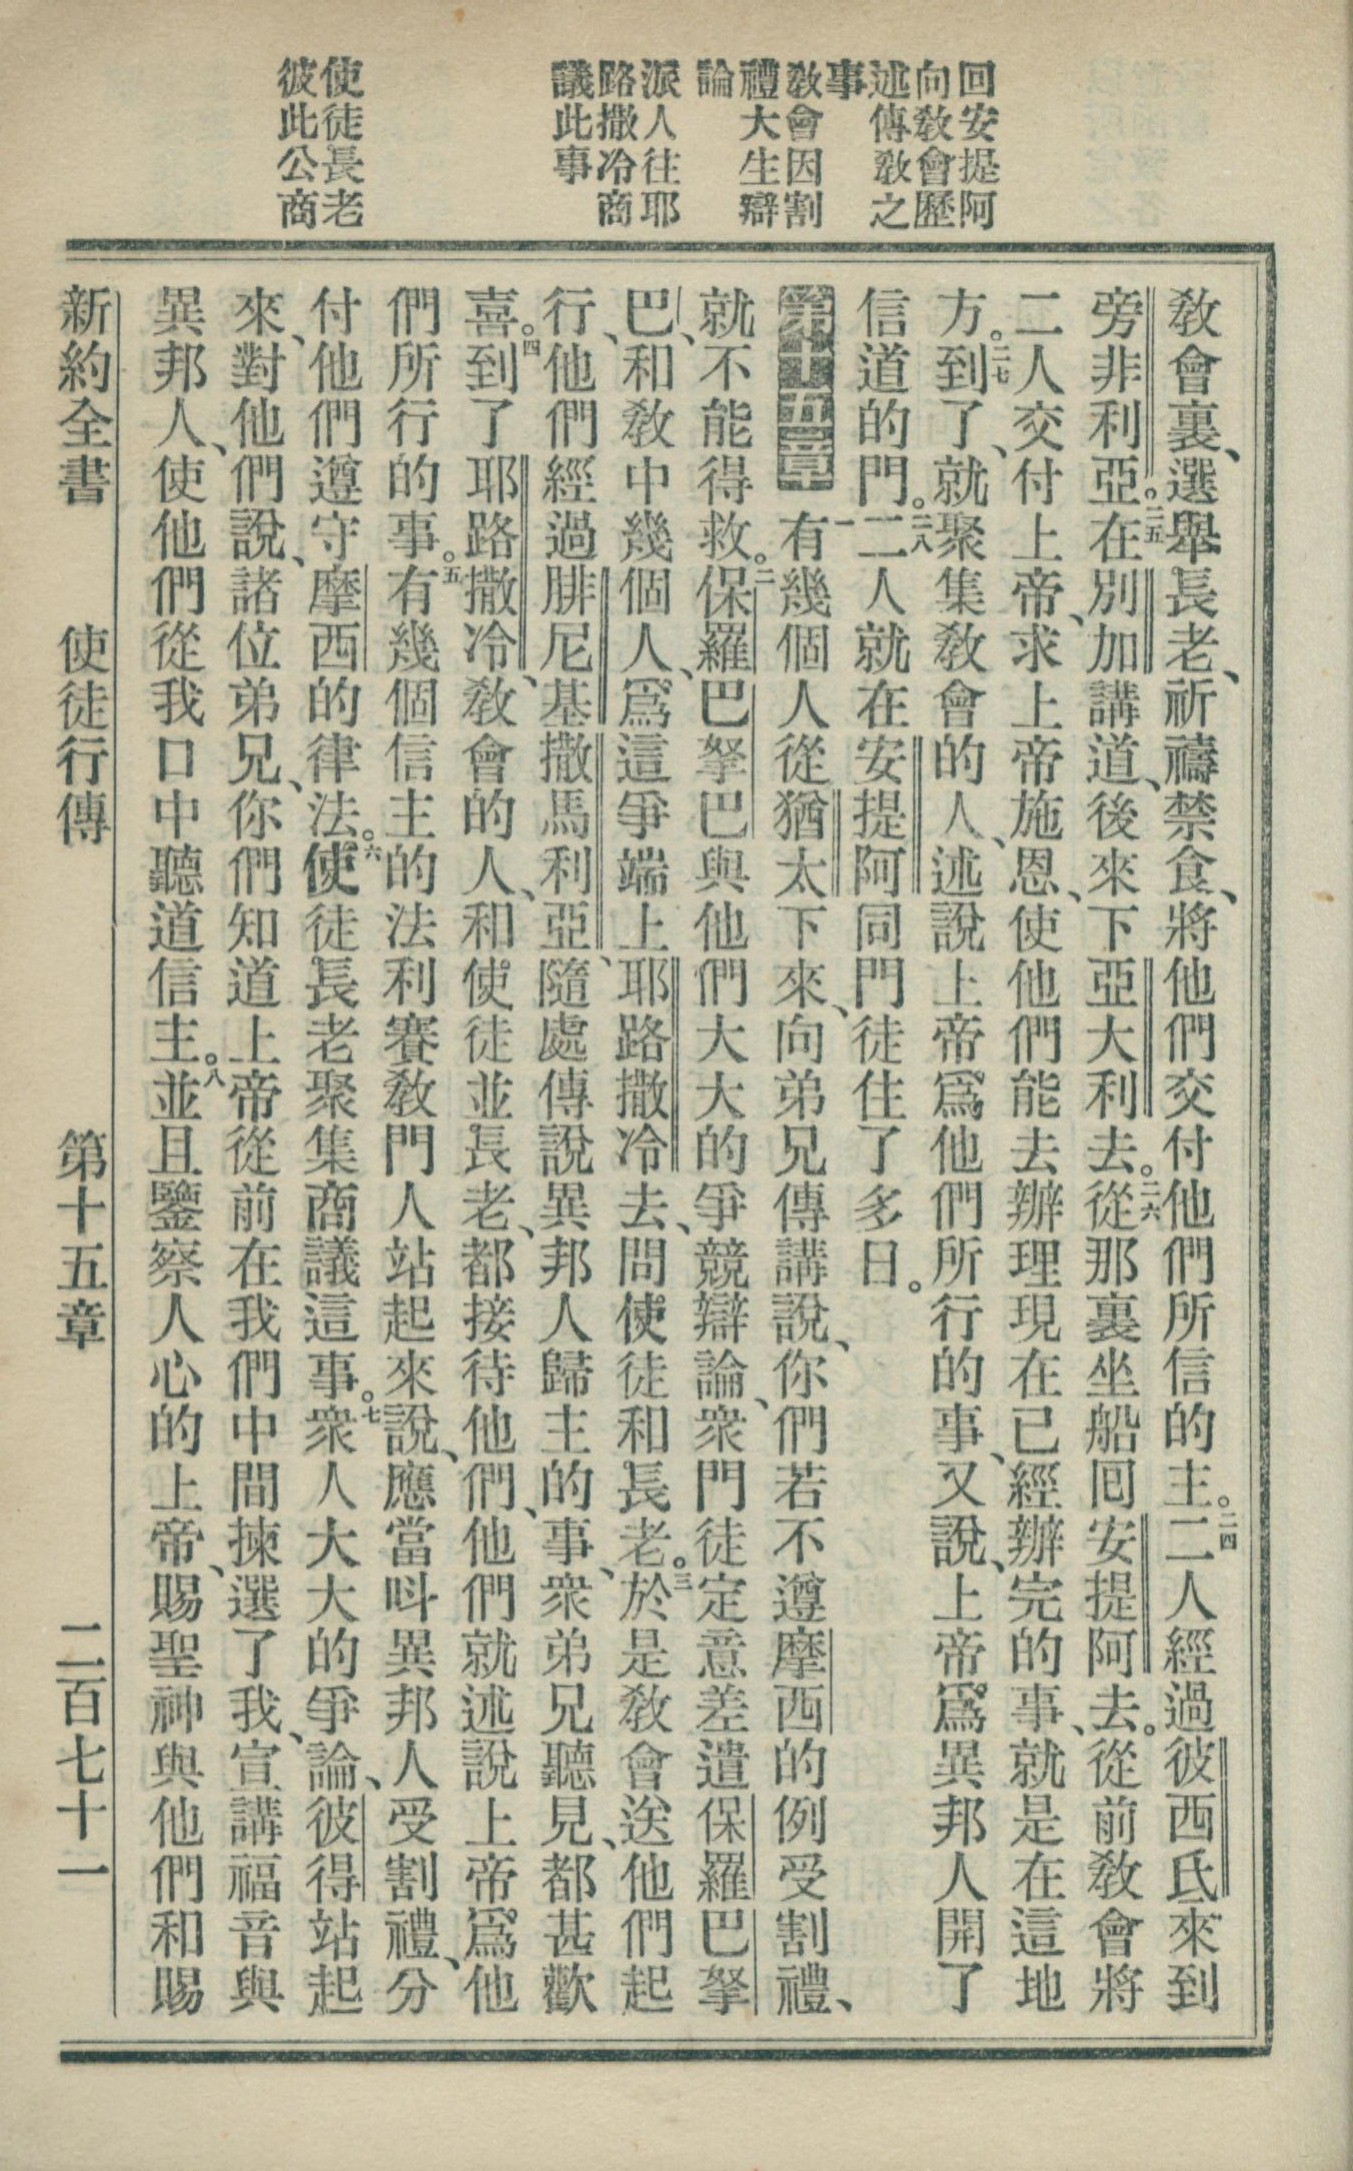 回安提阿
向敎會歷
述傳敎之
事
敎會因割
禮大生辯
論
派人往耶
路撒冷商
議此事
使徒長老
彼此公商
敎會裏、選舉長老、祈禱禁食、將他們交付他們所信的主。二四二人經過彼西氏來到
旁非利亞。二五在別加講道、後來下亞大利去。二六從那裏坐船囘安提阿去。從前敎會將
二人交付上帝、求上帝施恩、使他們能去辦理現在已經辦完的事、就是在這地
方。二七到了、就聚集敎會的人、述說上帝爲他們所行的事、又說、上帝爲異邦人開了
信道的門。二八二人就在安提阿同門徒住了多日。
第十五章 一有幾個人從猶太下來、向弟兄傳講說、你們若不遵摩西的例受割禮、
就不能得救。二保羅巴拏巴與他們大大的爭競辯論、衆門徒定意差遣保羅巴拏
巴、和敎中幾個人、爲這爭端上耶路撒冷去、問使徒和長老。三於是敎會送他們起
行、他們經過腓尼基撒馬利亞、隨處傳說異邦人歸主的事、衆弟兄聽見、都甚歡
喜。四到了耶路撒冷、敎會的人、和使徒並長老、都接待他們、他們就述說上帝爲他
們所行的事。五有幾個信主的法利賽敎門人站起來說、應當呌異邦人受割禮、分
付他們遵守摩西的律法。六使徒長老聚集商議這事。七衆人大大的爭論、彼得站起
來、對他們說、諸位弟兄、你們知道上帝從前在我們中間揀選了我、宣講福音與
異邦人、使他們從我口中聽道信主。八並且鑒察人心的上帝、賜聖神與他們和賜
新約全書 使徒行傳 第十五章 二百七十一